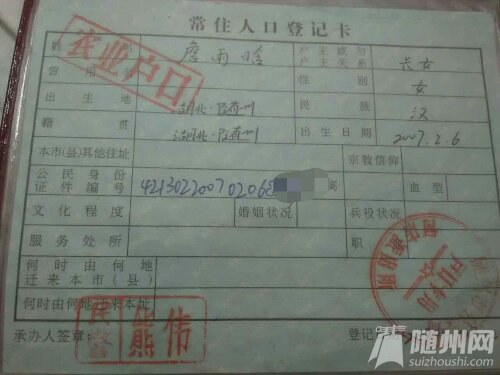 常住人口登记卡
詹雨晗 户主或与
户主关系 长女
农业户口
曾用 性别 女
出生地 湖北·随州 民族 汉
籍贯 湖北·随州 出生日期 2007.2.6
本市(县)其他住址 宗教信仰
公民身份
证件编号 42130220070206 高 血型
文化程度 婚姻状况 兵役状况
服务处所 职
何时由何地
迁来本市(县)
何时由何地迁来本址
承办人签章: 民警 熊伟 登记
户口专用
随州网
suizhoushi.com